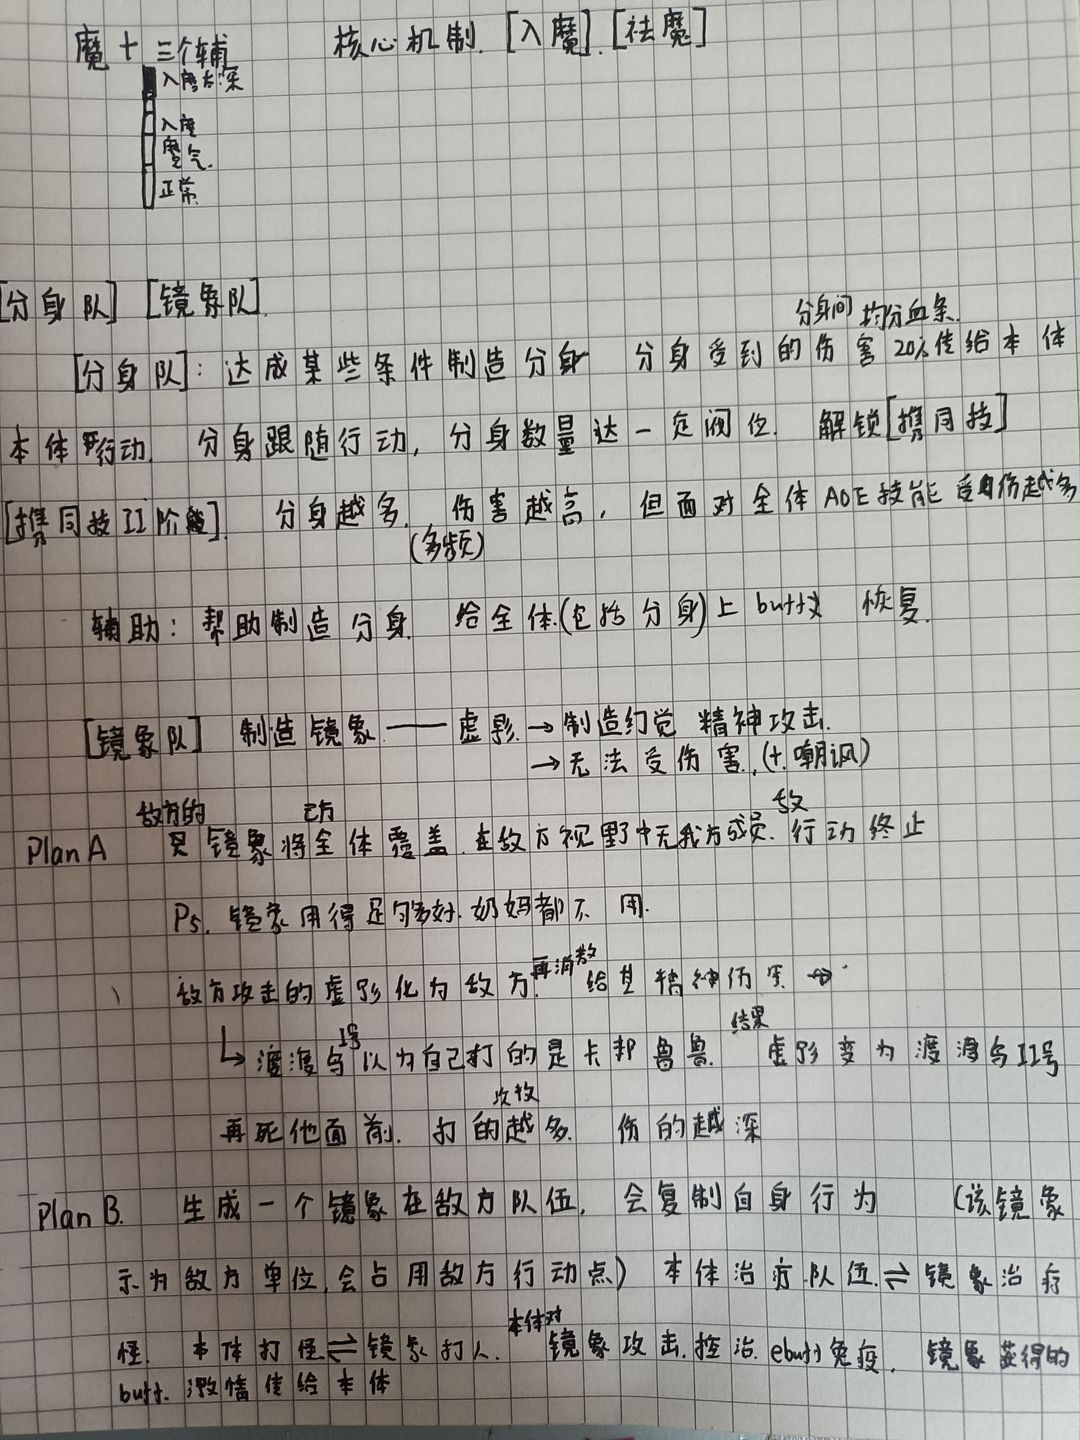 魔 + 三个辅 核心机制. [入魔]. [祛魔]
入魔太深
入魔
魔气.
正常.
[分身队] [镜象队].
分身间 均分血条.
[分身队]: 达成某些条件制造分身 分身受到的伤害20%传给本体
本体行动. 分身跟随行动, 分身数量达一定阀位. 解锁[携同技]
[携同技II阶段]. 分身越多. 伤害越高, 但面对全体AOE技能 受伤越多
(多频)
辅助: 帮助制造分身. 给全体.(包括分身)上buff 恢复.
[镜象队] 制造镜象 —— 虚影. → 制造幻觉 精神攻击.
→ 无法受伤害.(+.嘲讽)
敌方的 己方 敌
Plan A 镜象将全体覆盖. 在敌方视野中无我方成员. 行动终止
Ps. 镜象用得足够多好. 奶妈都不用.
再消散
、 敌方攻击的虚影化为敌方. 给其精神伤害 →
I号 结果
↳ 渡渡鸟以为自己打的是卡邦鲁兽. 虚影变为渡渡鸟II号
次数
再死他面前. 打的越多. 伤的越深
Plan B. 生成一个镜象在敌方队伍. 会复制自身行为 (该镜象
示为敌方单位, 会占用敌方行动点) 本体治疗队伍. ⇌ 镜象治疗
本体对
怪. 本体打怪 ⇌ 镜象打人. 镜象攻击. 控治. ebuff免疫. 镜象获得的
buff. 激情传给本体